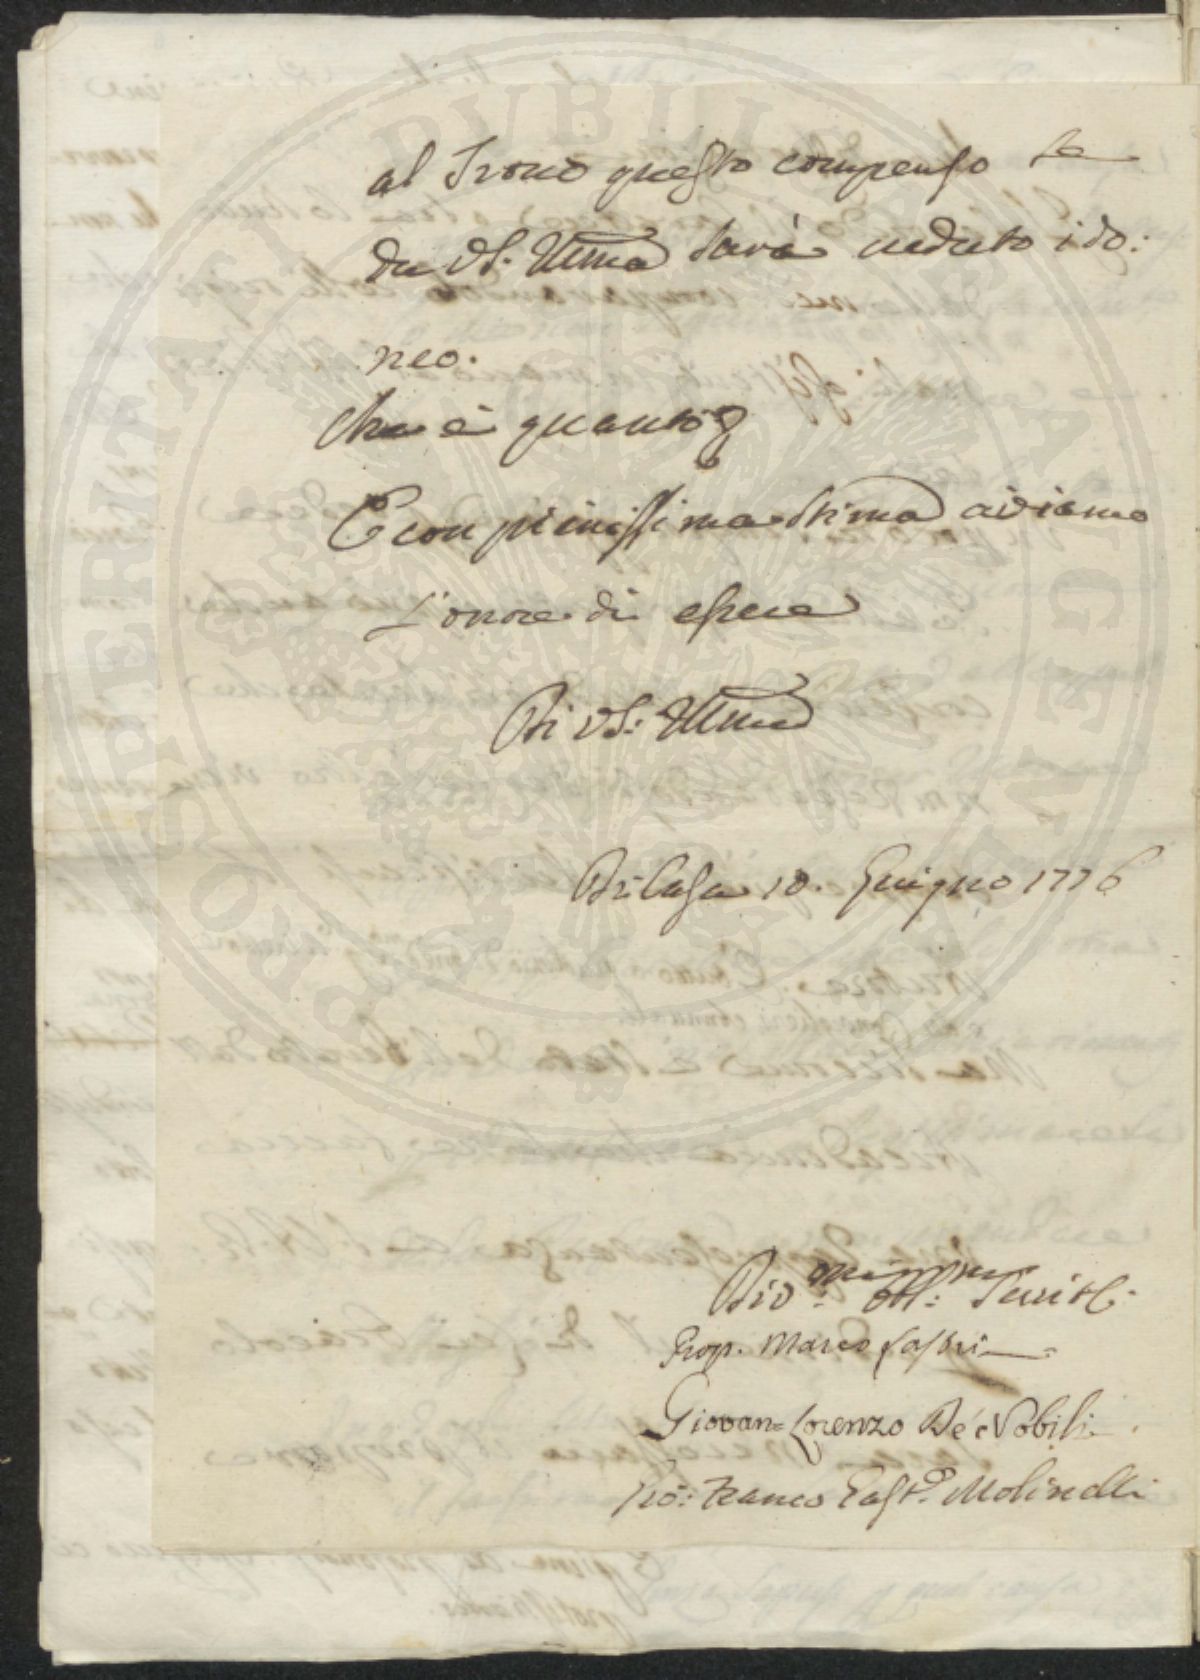 al Trono questo compenso se
da VS. Illma sarà veduto ido:
neo.
Che è quanto
E con pienissima stima abbiamo
L'onore di essere
Di VS: Illma
Di Casa 10. Giugno 1776
Div:mi Obl:mi Servit.
Prop. Marco Lastri
Giovan= Lorenzo De' Nobili
Gio: Franco Gast.º Molinelli
PROSPERITATI PUBLICAE AUGENDAE